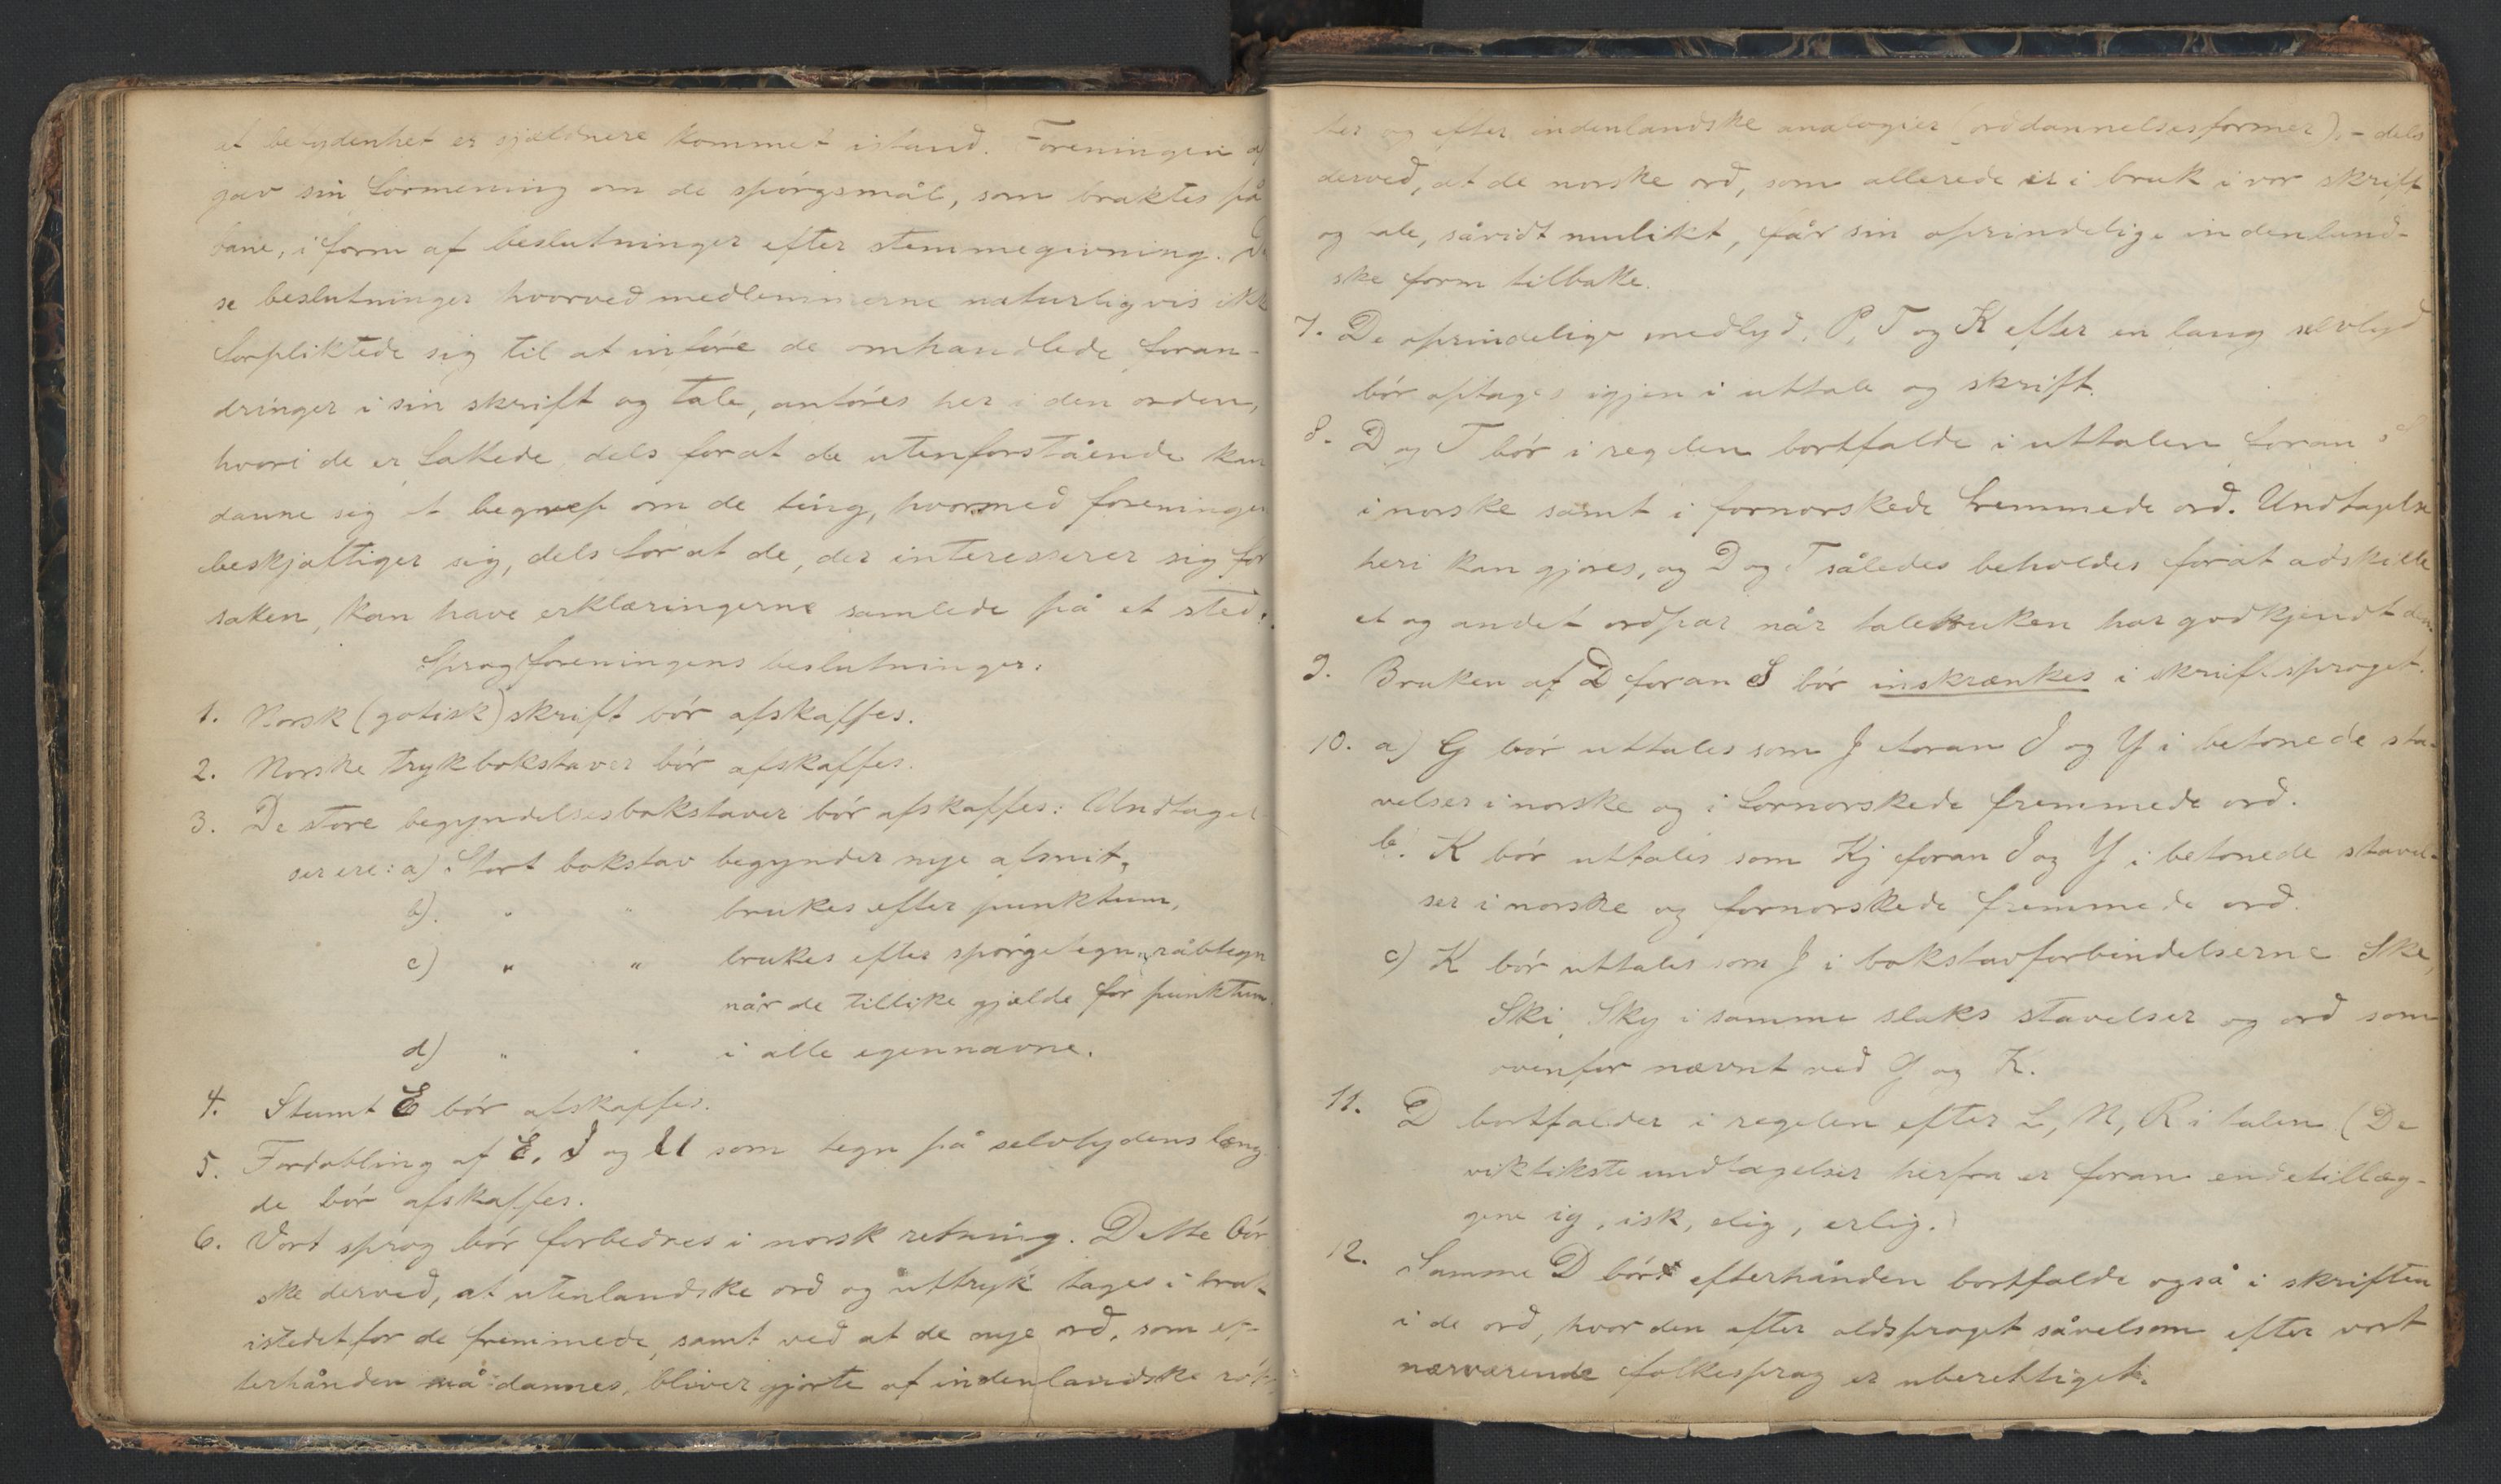 af betydenhet er sjældnere kommet istand. Foreningen af
gav sin formening om de spörgsmål, som braktes på
bane, i form af beslutninger efter stemmegivning. Di
se beslutninger hvorved medlemmerne naturligvis ikke
forpliktede sig til at införe de omhandlede foran-
dringer i sin skrift og tale, anföres her i den orden,
hvori de er fattede, dels forat de utenforstående kan
danne sig et begrep om de ting, hvormed foreningen
beskjæftiger sig, dels for at de, der interesserer sig for
saken, kan have erklæringerne samlede på et sted:
Sprogforeningens beslutninger.
1. Norsk (gotisk) skrift bör afskaffes.
2. Norske trykbokstaver bör afskaffes.
3. De store begyndelsesbokstaver bör afskaffes: Undtagel-
ser ere: a) Stort bokstav begynder nye afsnit,
b). " " brukes efter punktum,
c) " " brukes efter spörgetegn, råbtegn
når de tillike gjælde for punktum.
d) " " i alle egennavne.
4. Stumt E bör afskaffes.
5. Fordobling af E, I og U som tegn på selvlydens læng
de bör afskaffes.
6. Vort sprog bör forbedres i norsk retning. Dette bör
ske derved, at utenlandske ord og uttryk tages i bruk
istedetfor de fremmede, samt ved at de nye ord, som ef-
terhånden må dannes, bliver gjorte af indenlandske röt-
ter og efter indenlandske analogier (orddannelsesformer), - dels
derved, at de norske ord, som allerede er i bruk i vor skrift
og tale, såvidt mulikt, får sin oprindelige indenland-
ske form tilbake.
7. De oprindelige medlyd, P, T og K efter en lang selvlyd
bör optages igjen i uttale og skrift.
8. D og T bör i reglen bortfalde i uttalen foran s
i norske samt i fornorskede fremmede ord. Undtagelse
heri kan gjöres, og D og T således beholdes forat adskille
et og andet ordpar når talebruken har godkjendt den.
9. Bruken af D foran S bör inskrænkes i skriftsproget.
10. a) G bör uttales som J foran I og Y i betonede sta-
velser i norske og i fornorskede fremmede ord.
b. K bör uttales som Kj foran I og Y i betonede stavel-
ser i norske og fornorskede fremmede ord.
c) K bör uttales som J i bokstavforbindelserne Ske,
Ski, Sky i samme slaks stavelser og ord som
ovenfor nævnt ved G og K.
11. D bortfalder i regelen efter L, N, R i talen (De
viktikste undtagelser herfra er foran endetillæg-
gene ig, isk, elig, erlig.)
12. Samme D bör efterhånden bortfalde også i skriften
i de ord, hvor den efter oldsproget såvelsom efter vort
nærværende folkesprog er uberettiget.